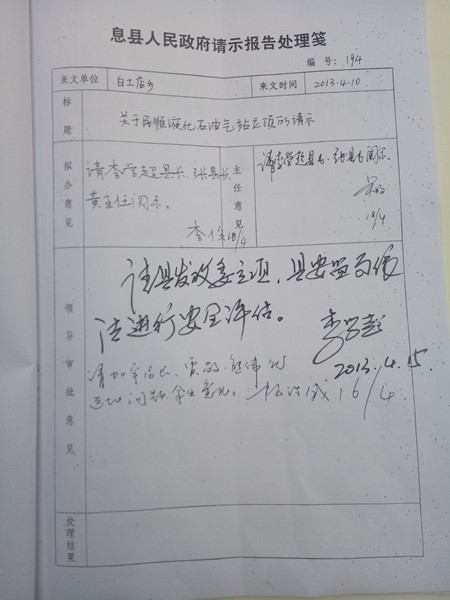 息县人民政府请示报告处理笺
编 号: 194
来文单位 白土店乡 来文时间 2013.4.10
标题 关于民顺液化石油气站立项的请示
拟办意见
请李学超县长、张县长
黄主任阅示。
李 18/4
主任意见
请李学超县长、张县长阅示。
10/4
领导审批意见
请县发改委立项,县安监局依
法进行安全评估。
李学超
2013.4.15
16/4
处理结果